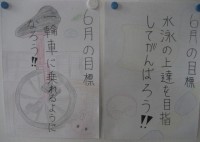 6月の目標
水泳の上達を目指
してがんばろう!!
6月の目標
一輪車に乗れるように
なろう!!